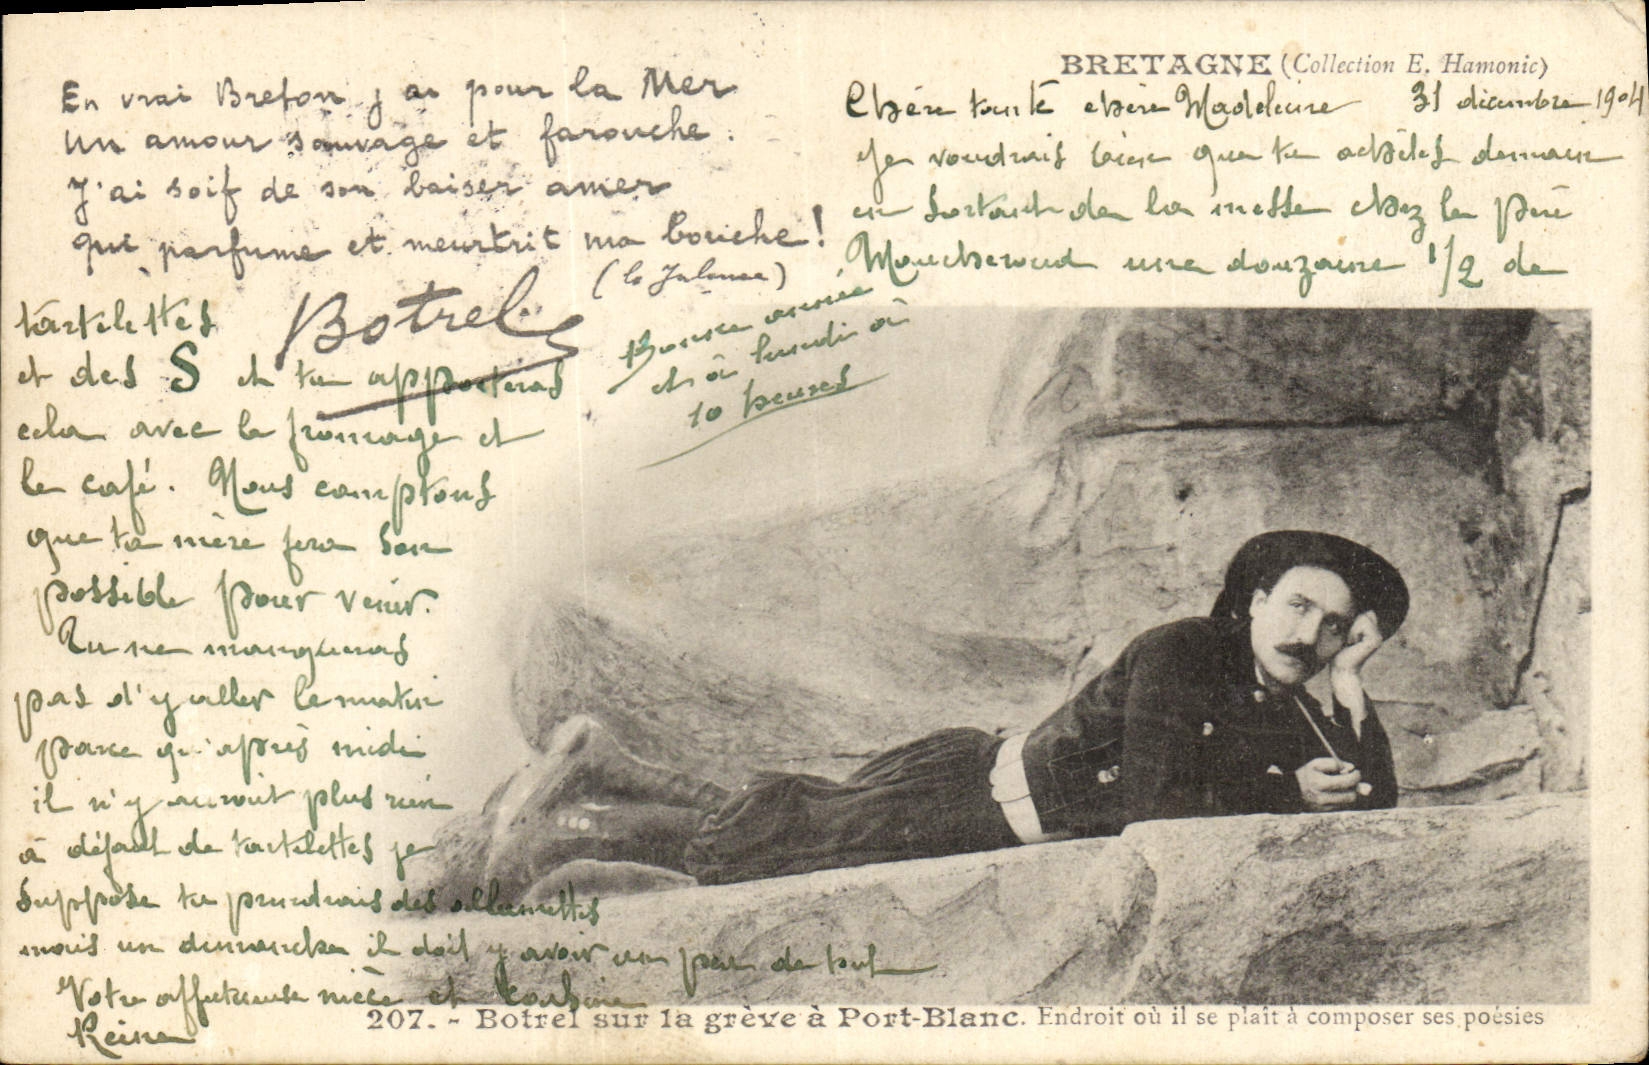 BRETAGNE (Collection E. Hamonic)
En vrai Breton j'ai pour la Mer
Un amour sauvage et farouche.
J'ai soif de son baiser amer
qui parfume et meurtrit ma bouche!
(la Jalouse)
Botrel
Chère tante chère Madeleine 31 décembre 1904
Je voudrais bien que tu achètes demain
en sortant de la messe chez le père
une douzaine 1/2 de
tartelettes
et des S et tu apporteras
cela avec le fromage et
le café. Nous comptons
que ta mère fera son
possible pour venir.
Tu ne manqueras
pas d'y aller le matin
parce qu'après midi
il n'y aurait plus rien
à défaut de tartelettes je
suppose tu prendrais des allumettes
mais un dimanche il doit y avoir un peu de tout
Votre affectueuse nièce et cousine
Reine
Bonne année
et à lundi à
10 heures
207. - Botrel sur la grève à Port-Blanc. Endroit où il se plaît à composer ses poésies